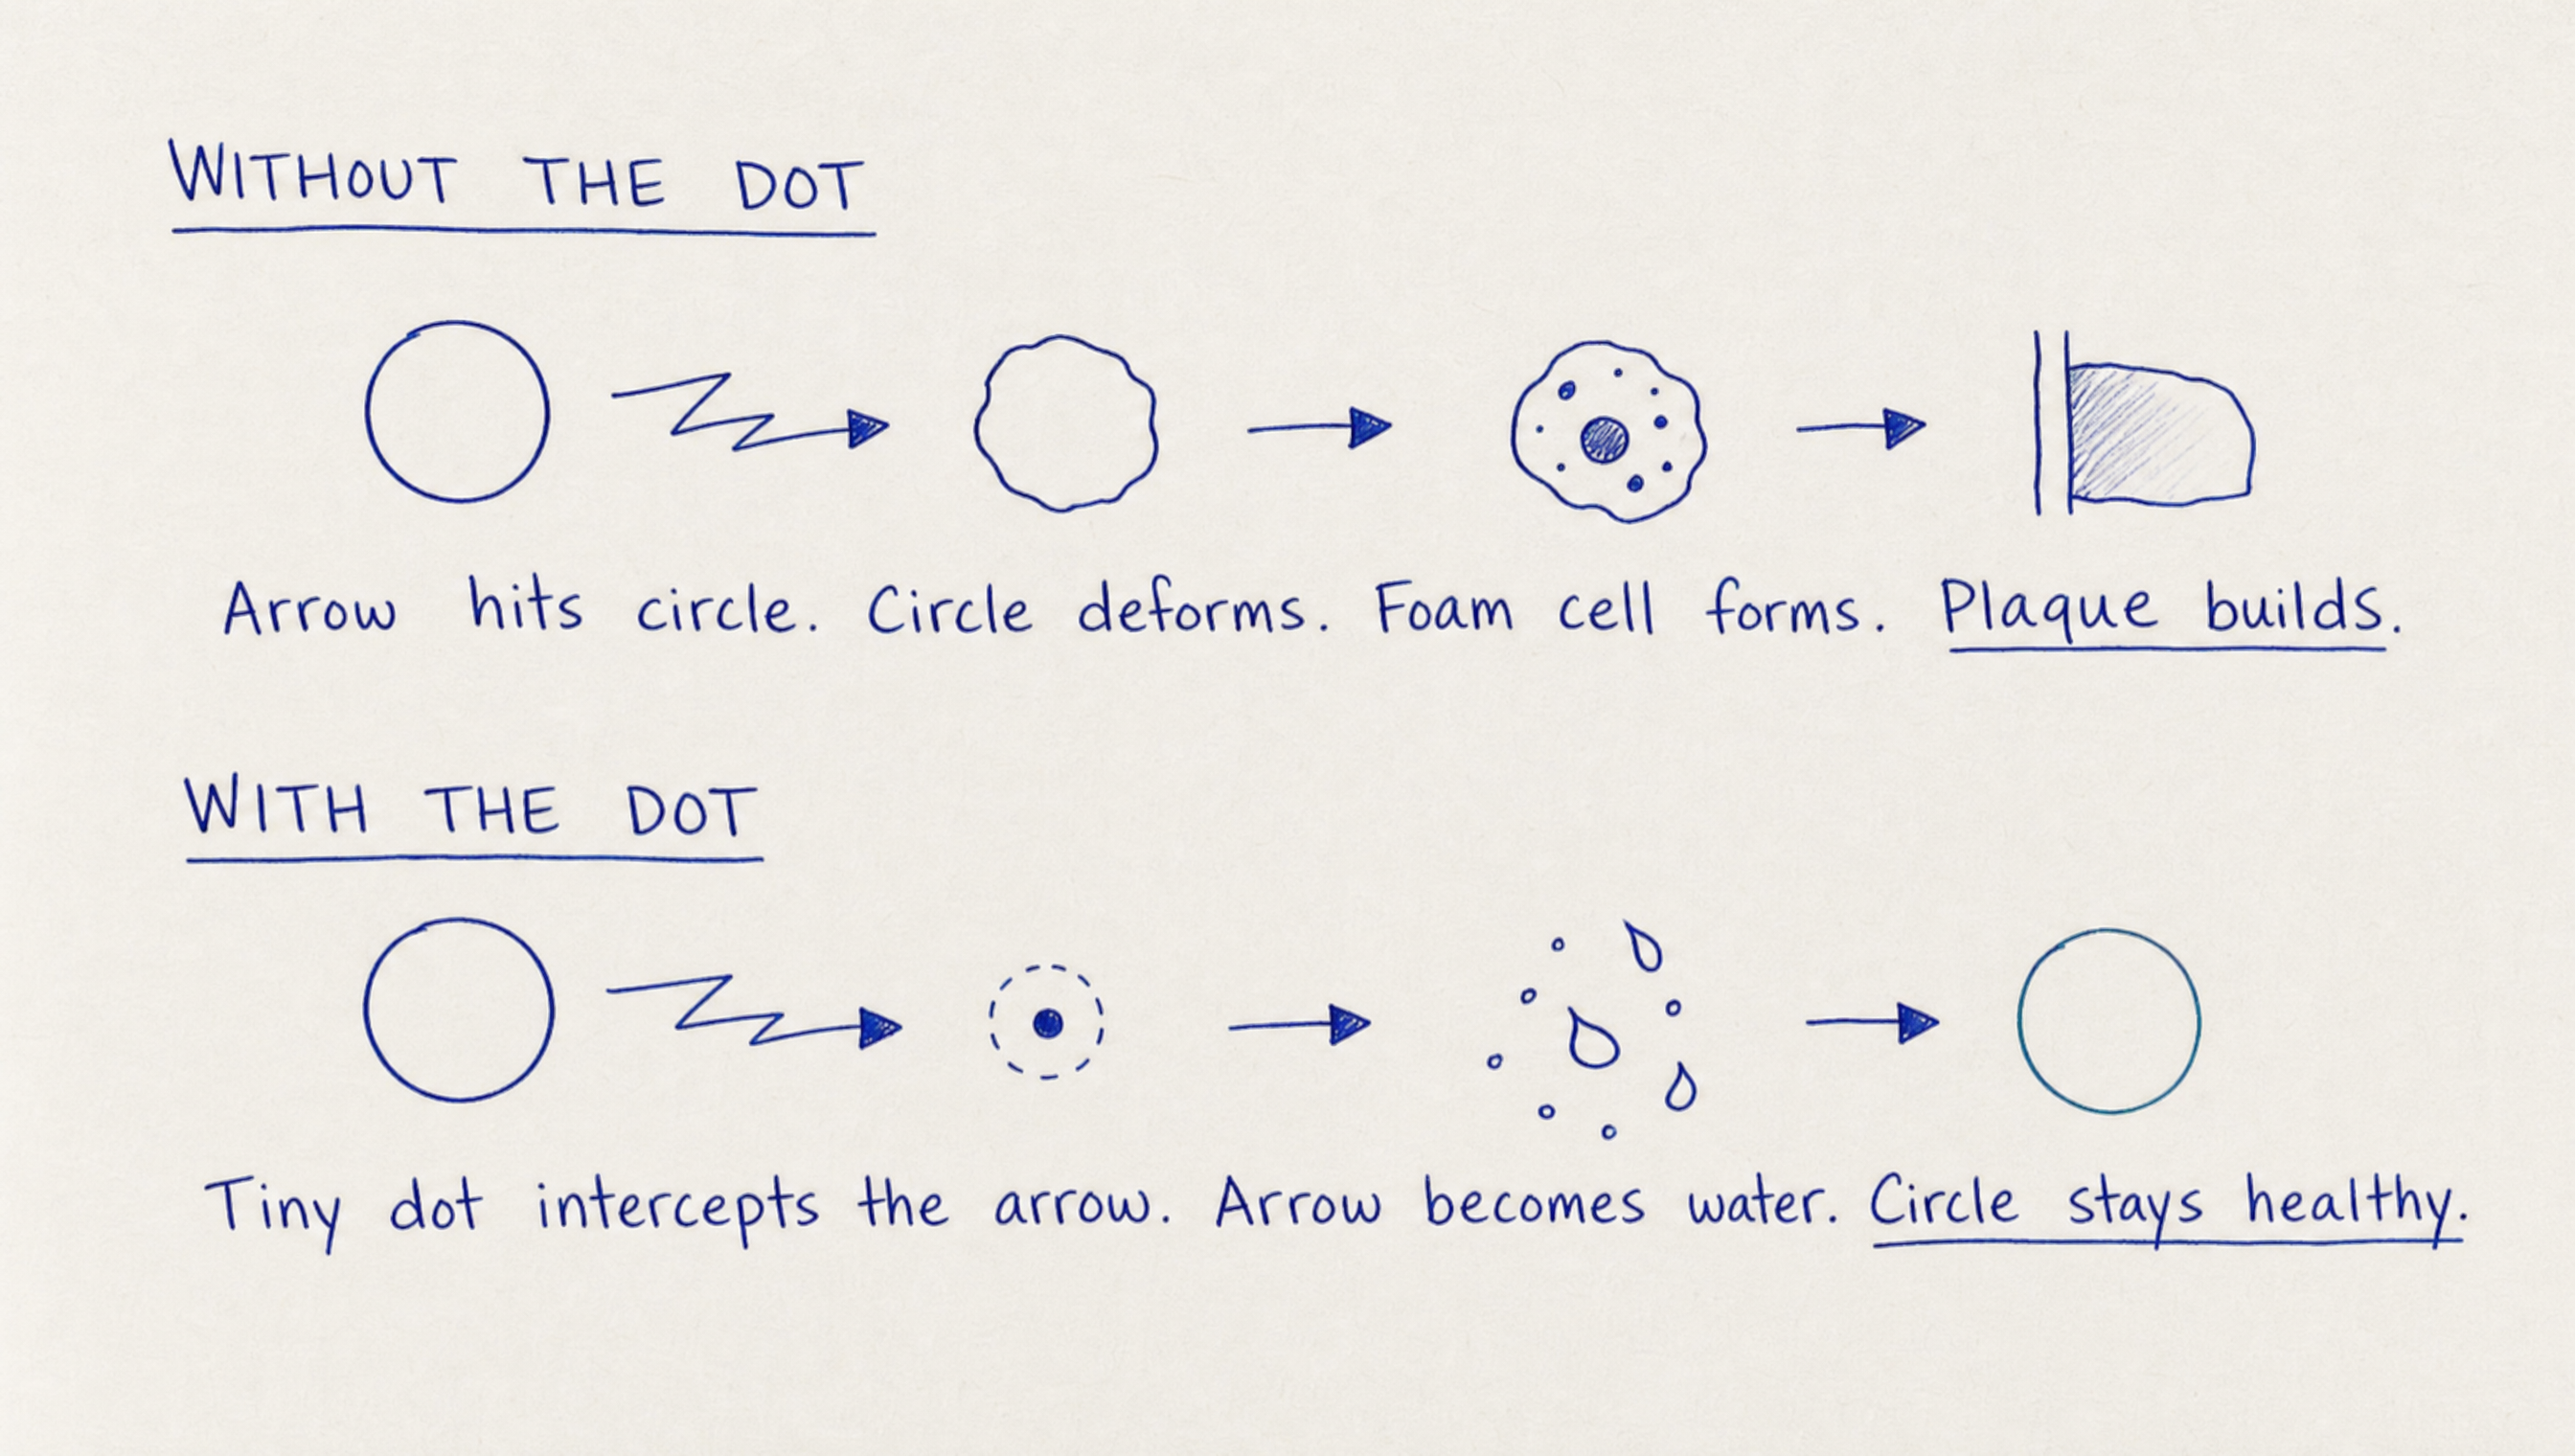 WITHOUT THE DOT
Arrow hits circle. Circle deforms. Foam cell forms. Plaque builds.
WITH THE DOT
Tiny dot intercepts the arrow. Arrow becomes water. Circle stays healthy.